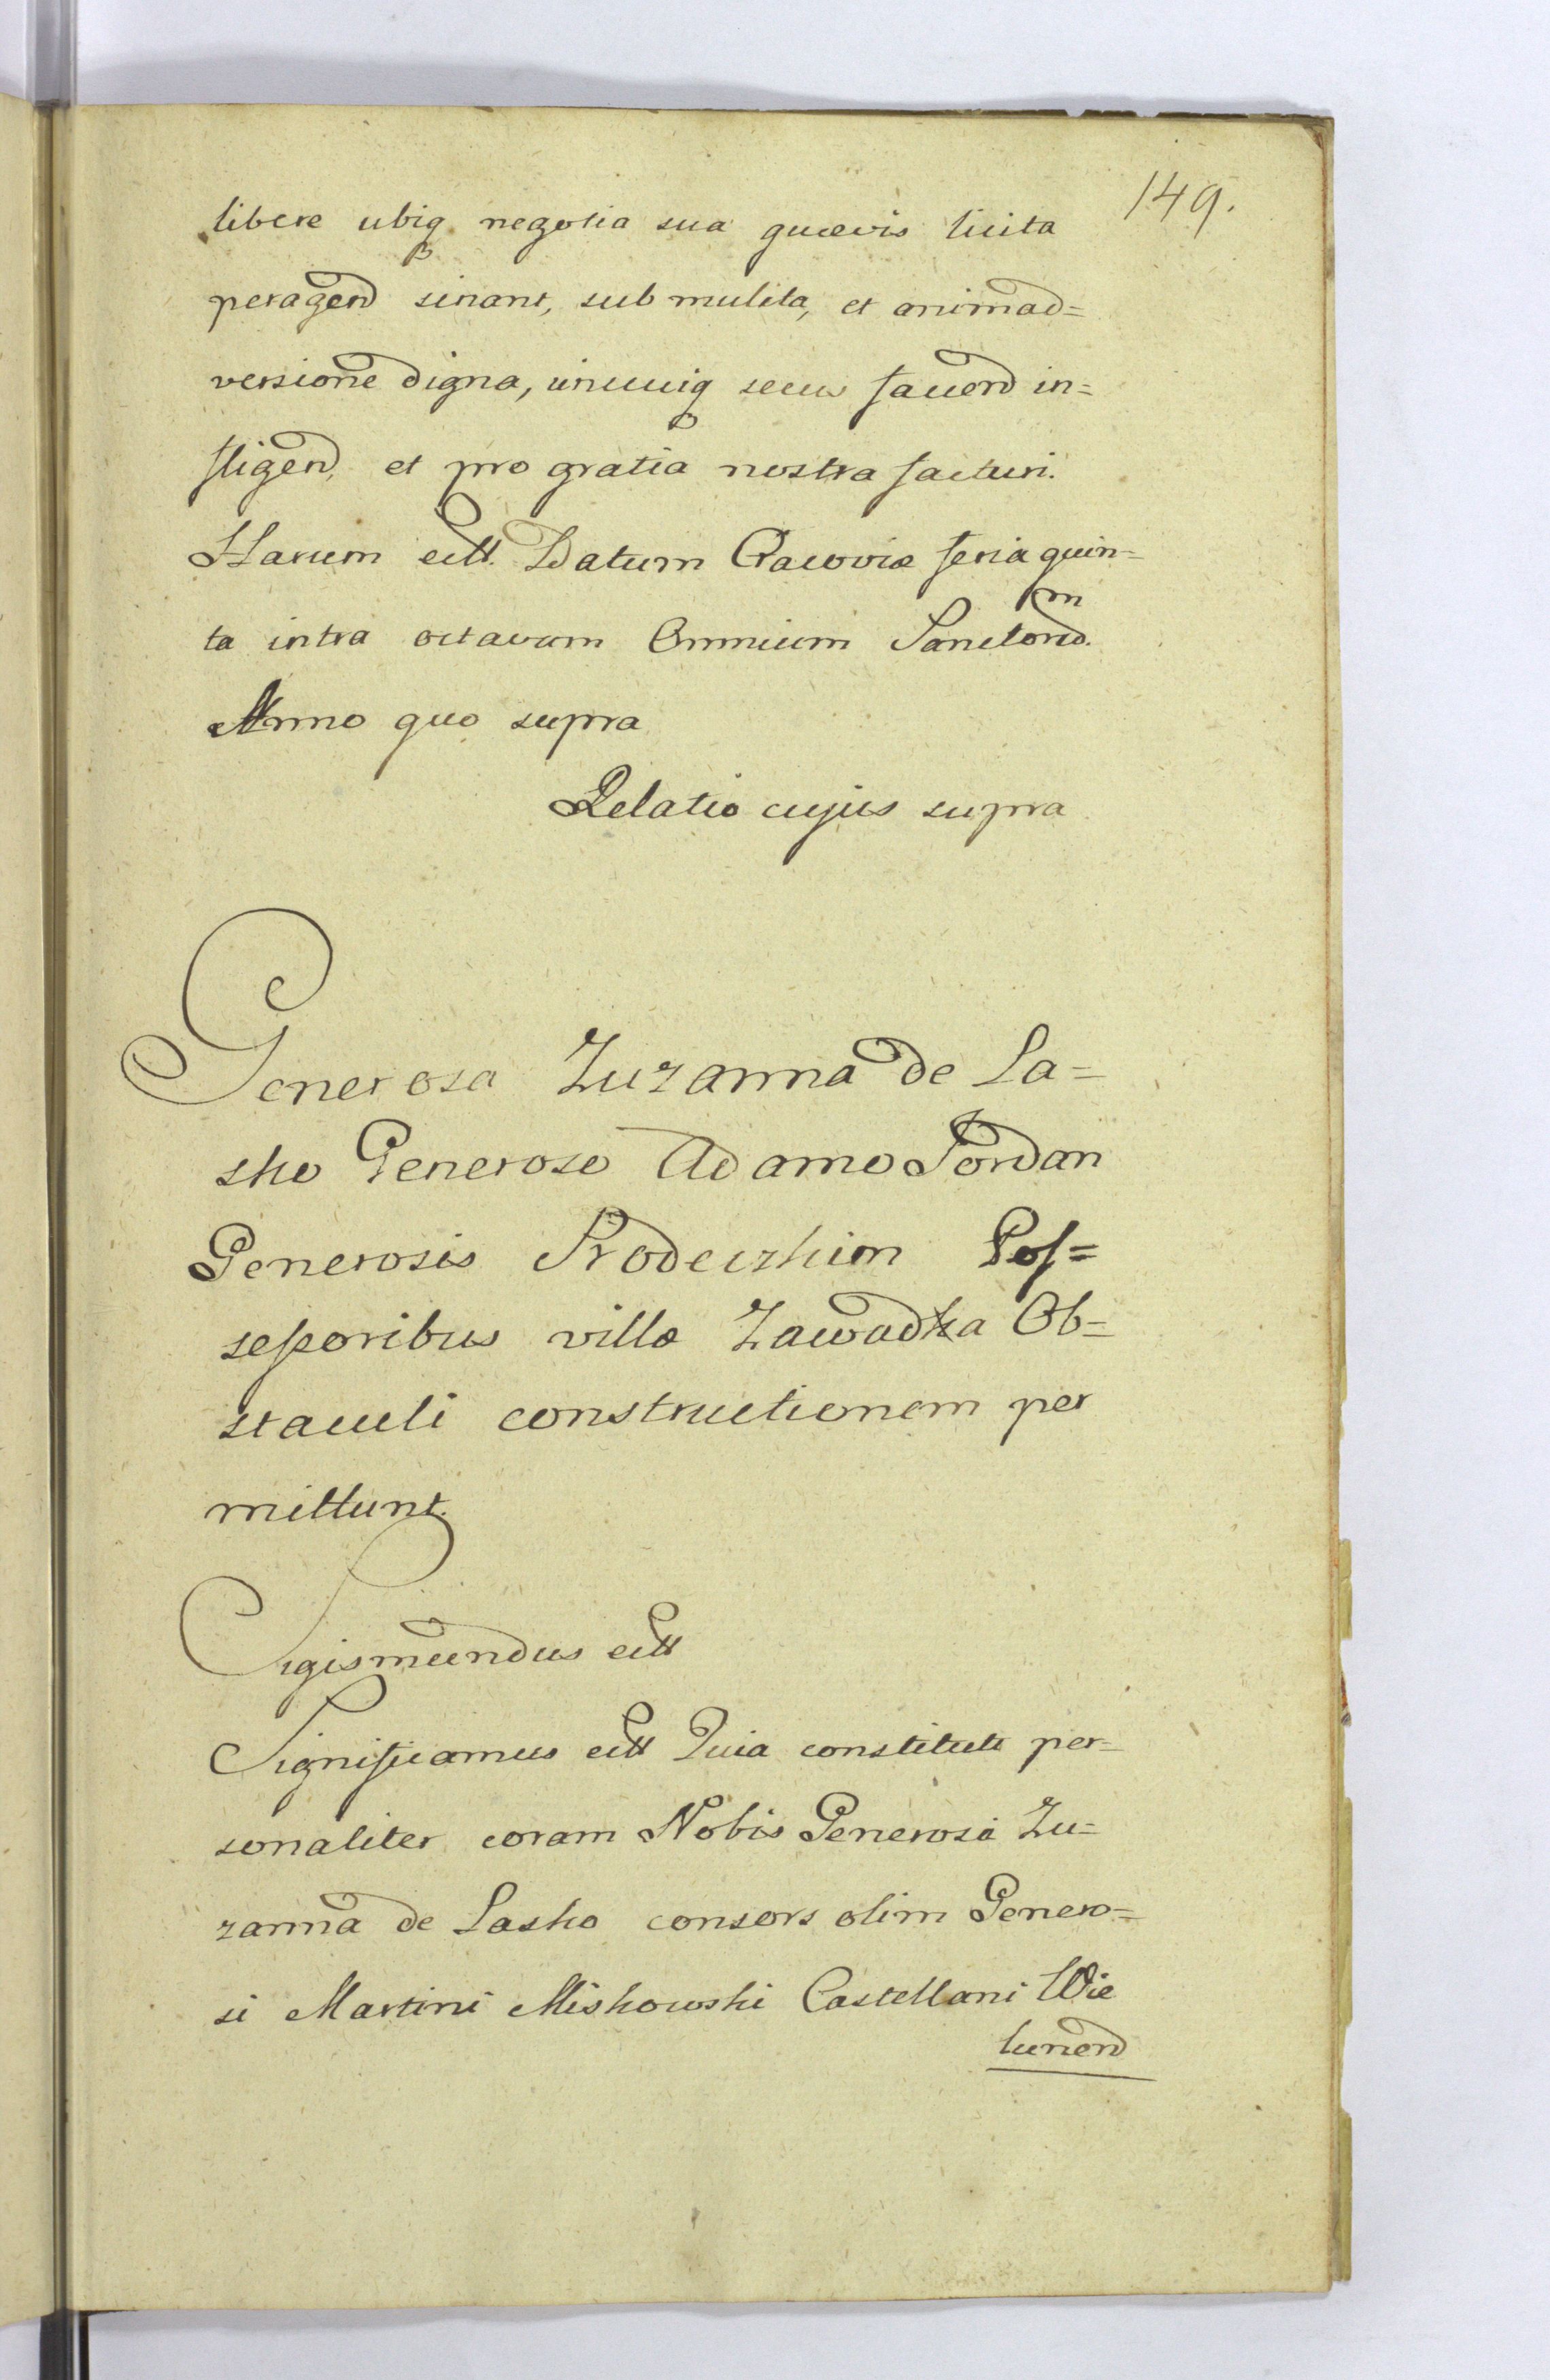 149.
libere ubiq negotia sua quævis licita
peragend sinant, sub mulcta, et animad=
versione digna, unicuiq secus facend in=
fligend, et pro gratia nostra facturi.
Harum ett. Datum Cracoviæ feria quin=
ta intra octavam Omnium Sanctorum.
Anno quo supra
Relatio cujus supra
Generosa Zuzanna de La=
sko Generoso Adamo Jordan
Generosis Prodeczkim Pos=
sessoribus villæ Zawadka Ob=
staculi constructionem per
mittunt.
Sigismundus ett
Significamus ett Quia constituti per=
sonaliter coram Nobis Generosa Zu=
zanna de Lasko consors olim Genero=
si Martini Miskowski Castellani Wie
lunend